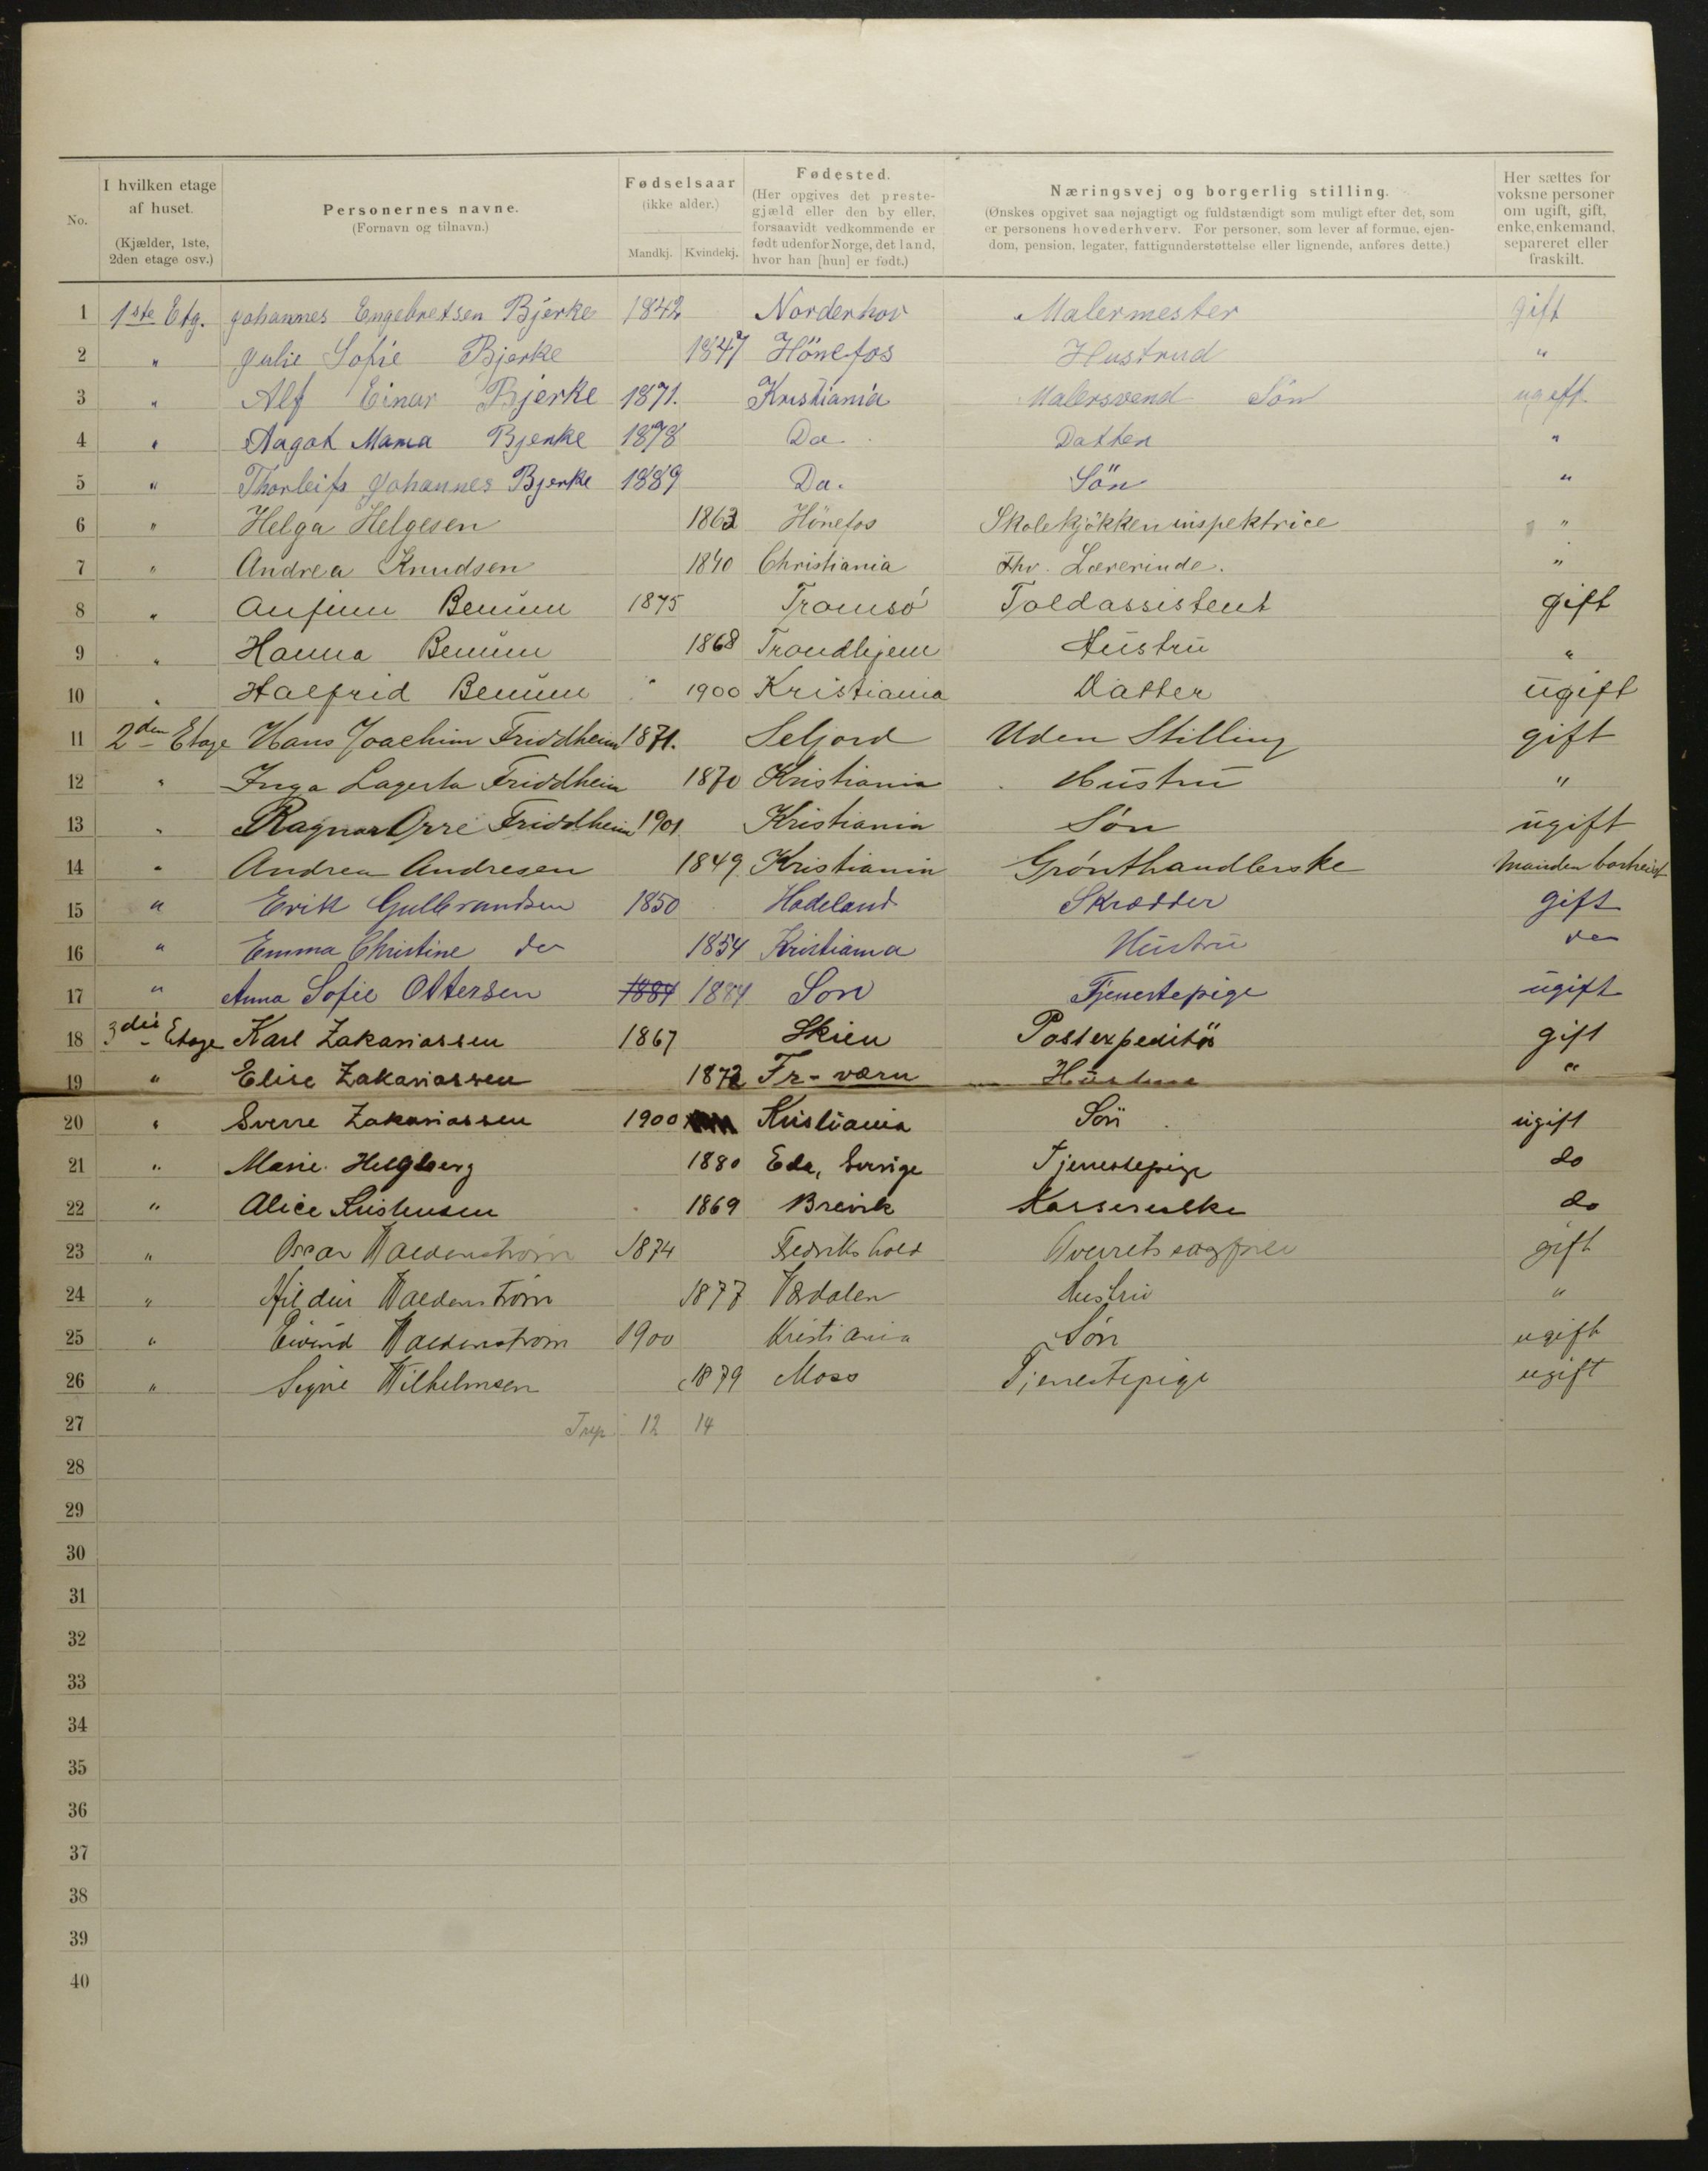 No.
I hvilken etage af huset. (Kjælder, 1ste, 2den etage osv.)
Personernes navne. (Fornavn og tilnavn.)
Fødselsaar (ikke alder.) Mandkj. Kvindekj.
Fødested. (Her opgives det prestegjæld eller den by eller, forsaavidt vedkommende er født udenfor Norge, det land, hvor han [hun] er født.)
Næringsvej og borgerlig stilling. (Ønskes opgivet saa nøjagtigt og fuldstændigt som muligt efter det, som er personens hovederhverv. For personer, som lever af formue, ejendom, pension, legater, fattigunderstøttelse eller lignende, anføres dette.)
Her sættes for voksne personer om ugift, gift, enke, enkemand, separeret eller fraskilt.
1 1ste Etg. Johannes Engebretsen Bjerke 1842 Norderhov Malermester gift
2 " Julie Sofie Bjerke 1847 Hönefos Hustrud "
3 " Alf Einar Bjerke 1871. Kristiania Malersvend Sön ugift.
4 " Aagot Maria Bjerke 1878 Do. Datter "
5 " Thorleif Johannes Bjerke 1889 Do. Sön "
6 " Helga Helgesen 1863 Hönefos Skolekjökkeninspektrice "
7 " Andrea Knudsen 1840 Christiania Fhv. Lærerinde. "
8 " Anfinn Bennum 1875 Tromsö Toldassistent gift
9 " Hanna Bennum 1868 Trondhjem Hustru "
10 " Halfrid Bennum " 1900 Kristiania Datter ugift
11 2den Etage Hans Joachim Friddheim 1871. Seljord Uden Stilling gift
12 " Inga Lagerta Friddheim 1870 Kristiania Hustru "
13 " Ragnar Orre Friddheim 1901 Kristiania Søn ugift
14 " Andrea Andresen 1849 Kristiania Grønthandlerske Manden bortreist
15 " Erik Gulbrandsen 1850 Hadeland Skrædder gift
16 " Emma Christine do 1854 Kristiania Hustru do
17 " Anna Sofie Ottersen 1884 1884 Son Tjenestepige ugift
18 3die Etage Karl Zakariassen 1867 Skien Postexpeditör gift
19 " Elise Zakariassen 1872 Fr-værn Hustru "
20 " Sverre Zakariassen 1900 Kristiania Sön ugift
21 " Marie Helgberg 1880 Eda, Sverige Tjenestepige do
22 " Alice Kristensen 1869 Brevik do
23 " Oscar Waldenstrøm 1874 Fredrikshald Overretssagfører gift
24 " Waldenstrøm 1877 Værdalen Hustru "
25 " Eivind Waldenstrøm 1900 Kristiania Søn ugift
26 " Signe Wilhelmsen 1879 Moss Tjenestepige ugift
27 12 14
28
29
30
31
32
33
34
35
36
37
38
39
40